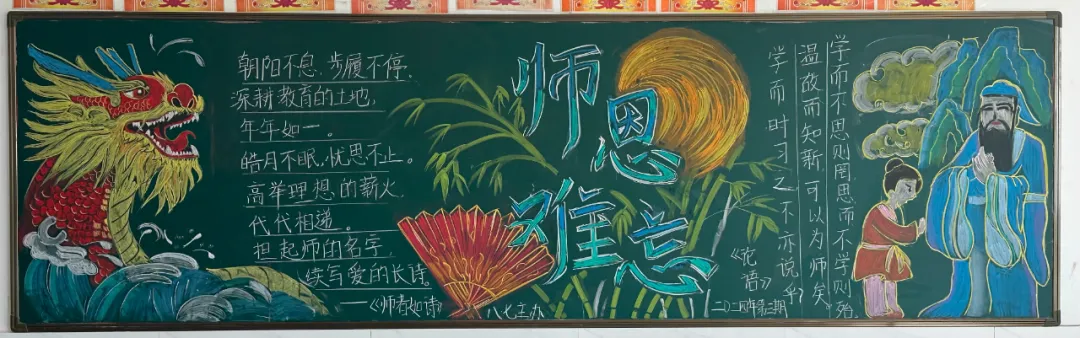 朝阳不息,步履不停,
深耕教育的土地,
年年如一。
皓月不眠,忧思不止。
高举理想的薪火,
代代相递。
担起师的名字,
续写爱的长诗。
——《师者如诗》
师恩难忘
八七主办
学而不思则罔思而不学则殆
温故而知新,可以为师矣
学而时习之不亦说乎
《论语》
二〇二四年第三期